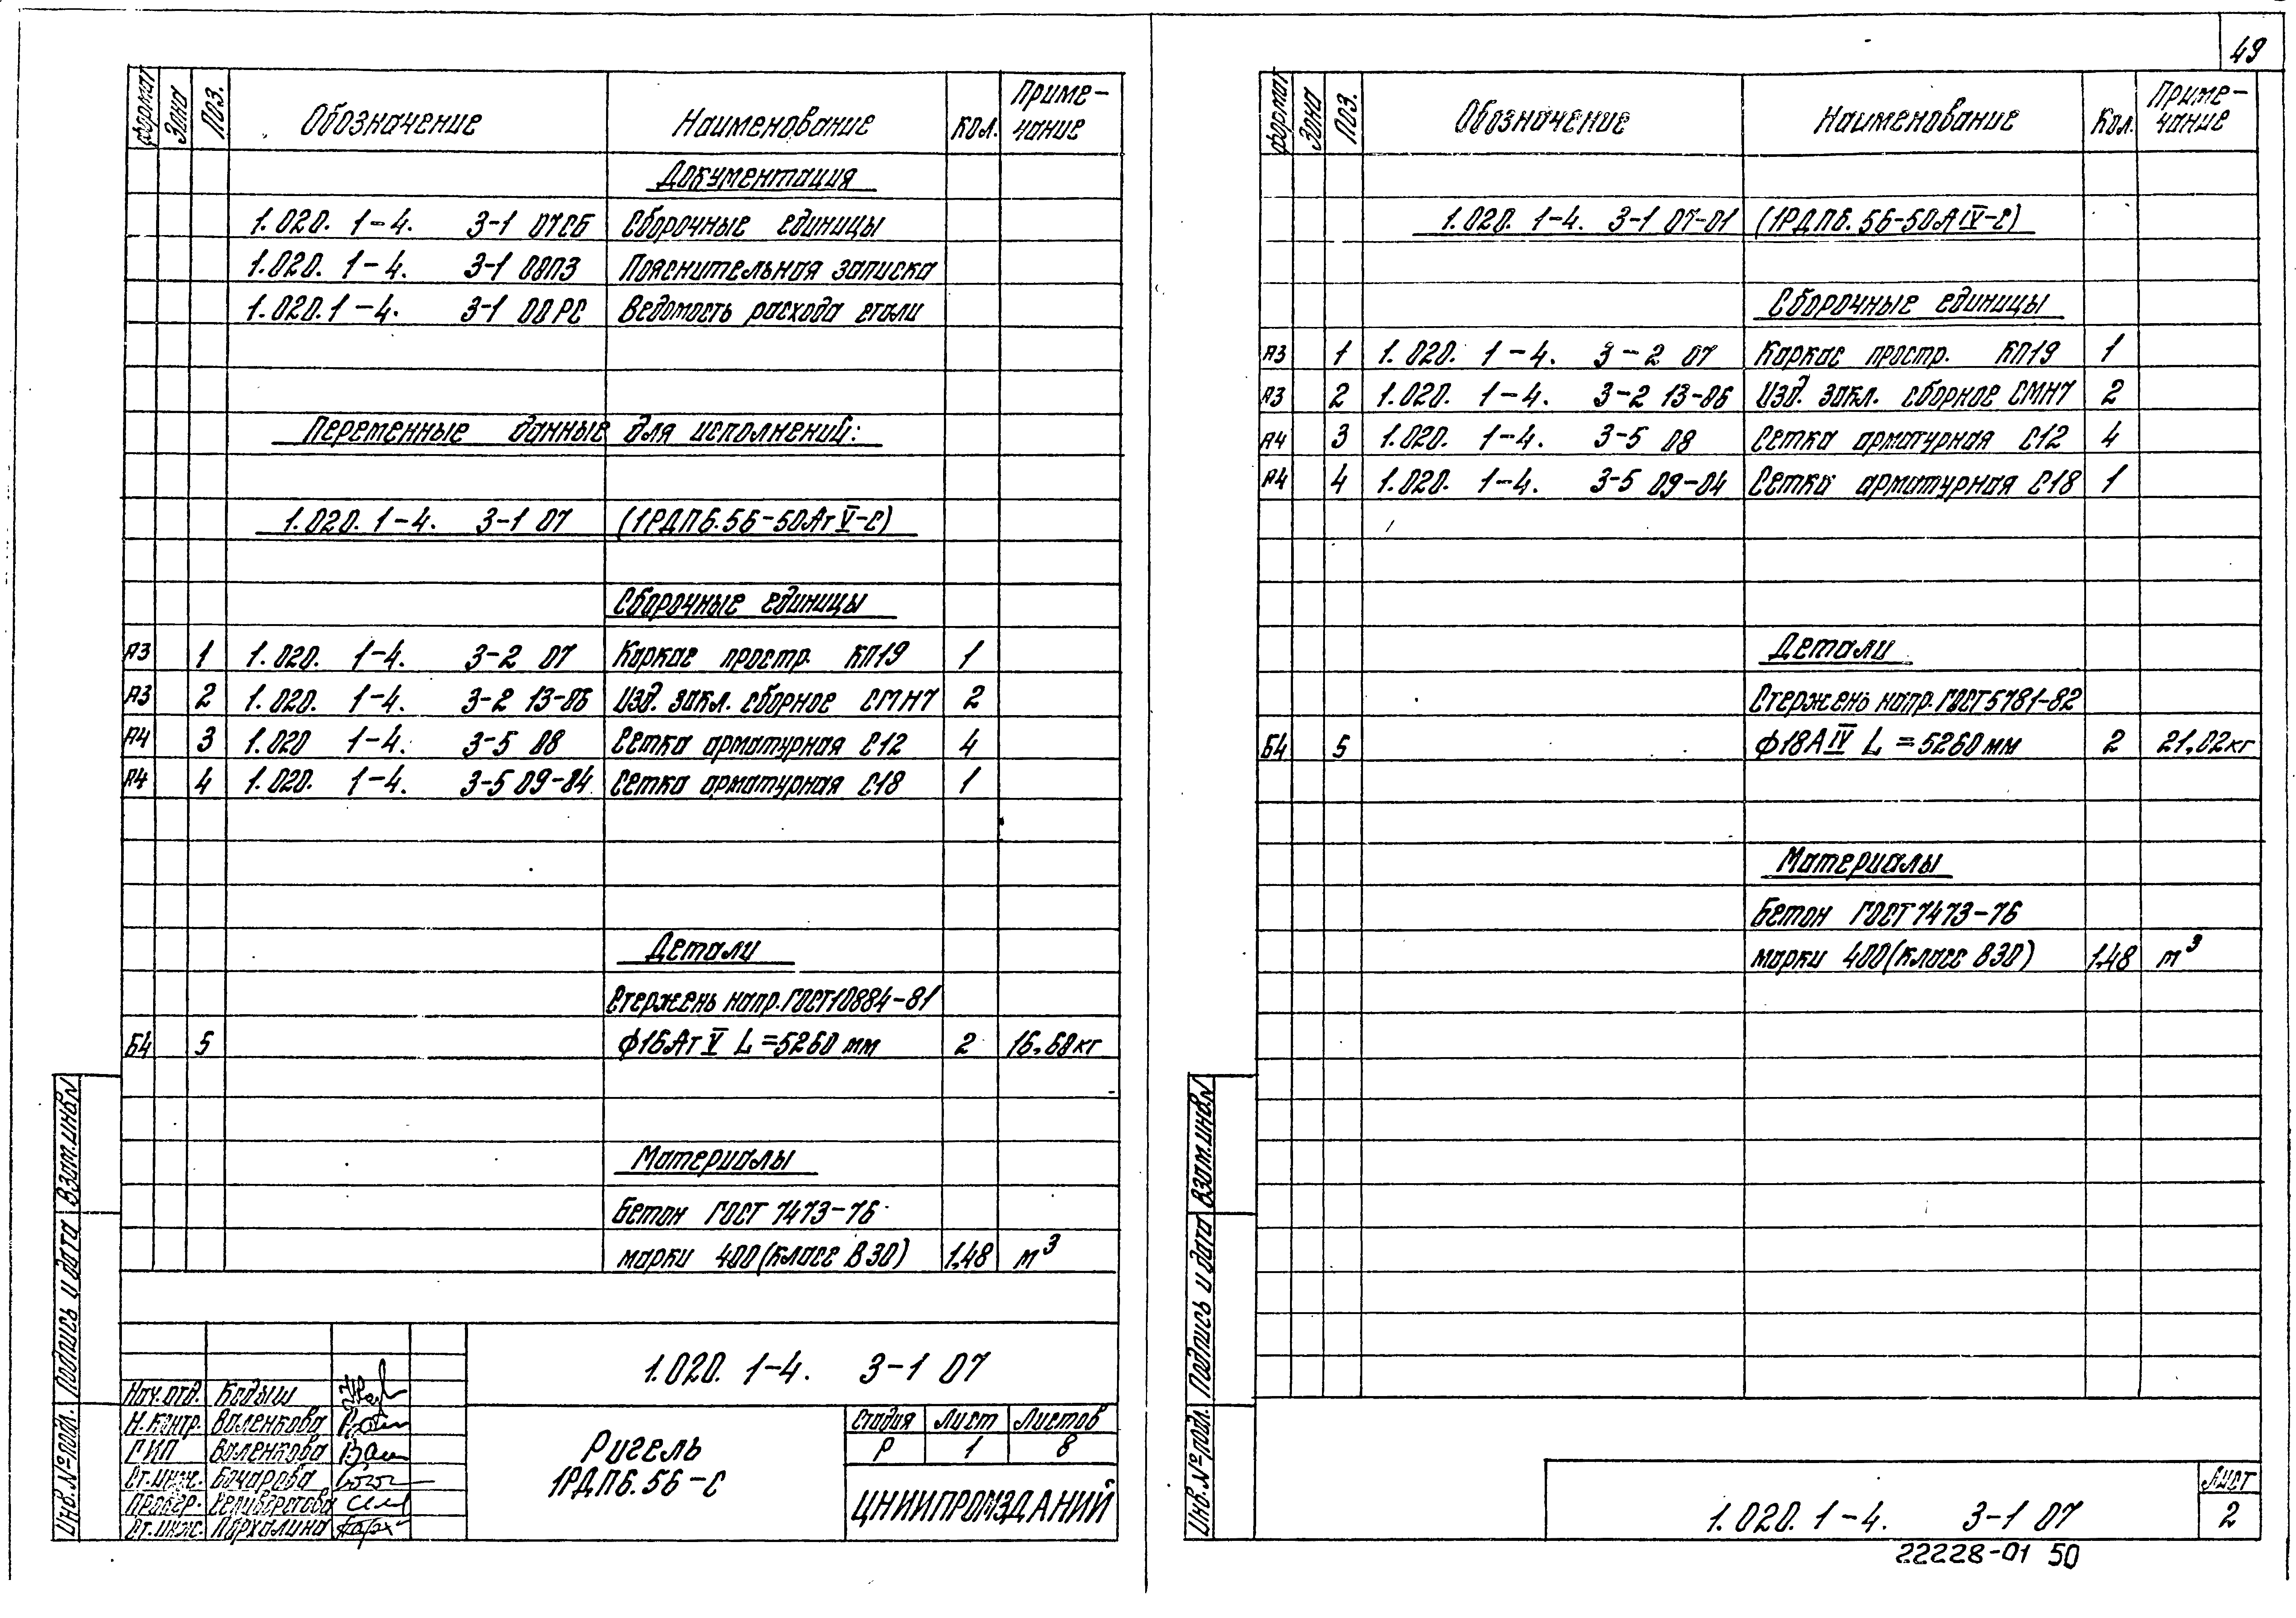 49
формат Зона Поз. Обозначение Наименование Кол. Приме-чание
Документация
1.020. 1-4. 3-1 07СБ Сборочные единицы
1.020. 1-4. 3-1 00ПЗ Пояснительная записка
1.020.1-4. 3-1 00РС Ведомость расхода стали
Переменные данные для исполнений:
1.020. 1-4. 3-1 07 (1РДП6.56-50АтV-С)
Сборочные единицы
А3 1 1.020. 1-4. 3-2 07 Каркас простр. КП19 1
А3 2 1.020. 1-4. 3-2 13-06 Изд. закл. сборное СМН7 2
А4 3 1.020 1-4. 3-5 08 Сетка арматурная С12 4
А4 4 1.020. 1-4. 3-5 09-04 Сетка арматурная С18 1
Детали
Стержень напр.ГОСТ10884-81
Б4 5 ф16АтV L=5260 мм 2 16,68кг
Материалы
Бетон ГОСТ 7473-76
марки 400(класс В30) 1,48 м³
Инв.№подл. Подпись и дата Взам.инв.№
1.020. 1-4. 3-1 07
Нач.отд. Кодыш
Н.контр. Валенкова
ГИП Валенкова
Ст.инж. Бочарова
Провер. Селиверстова
Ст.инж. Пархалина
Ригель
1РДП6.56-С
Стадия Лист Листов
Р 1 8
ЦНИИПРОМЗДАНИЙ
формат Зона Поз. Обозначение Наименование Кол. Приме-чание
1.020. 1-4. 3-1 07-01 (1РДП6.56-50АIV-С)
Сборочные единицы
А3 1 1.020. 1-4. 3-2 07 Каркас простр. КП19 1
А3 2 1.020. 1-4. 3-2 13-06 Изд. закл. сборное СМН7 2
А4 3 1.020. 1-4. 3-5 08 Сетка арматурная С12 4
А4 4 1.020. 1-4. 3-5 09-04 Сетка арматурная С18 1
Детали
Стержень напр.ГОСТ5781-82
Б4 5 ф18АIV L=5260мм 2 21,02кг
Материалы
Бетон ГОСТ7473-76
марки 400(класс В30) 1,48 м³
Инв.№подл. Подпись и дата Взам.инв.№
1.020. 1-4. 3-1 07
Лист
2
22228-01 50